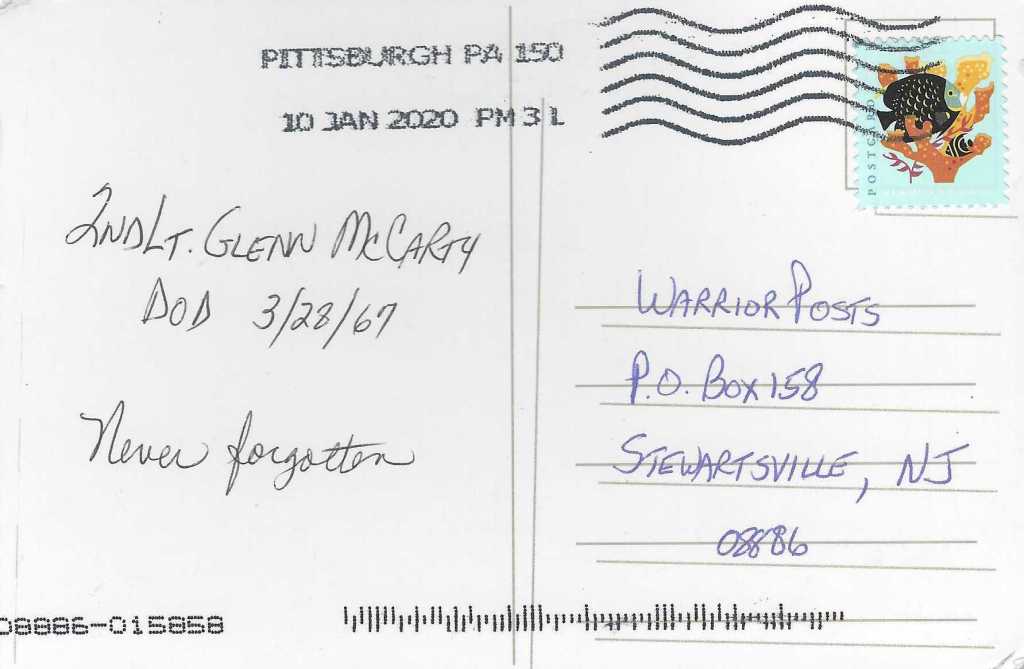 PITTSBURGH PA 150
10 JAN 2020 PM 3 L
POSTCARD
2NDLT. GLENN MCCARTY
DOD 3/28/67
Never forgotten
WARRIOR POSTS
P.O. BOX 158
STEWARTSVILLE, NJ
08886
08886-015858